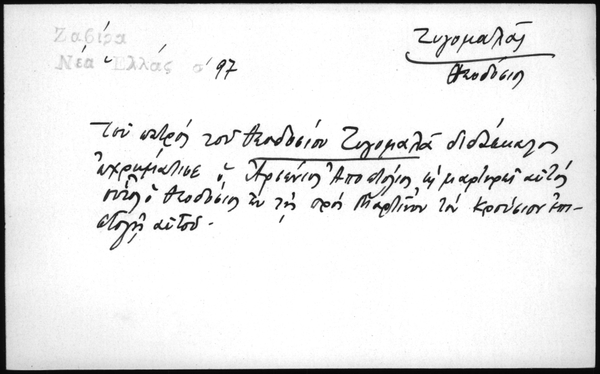 Ζαβίρα
Νέα Ἑλλάς σ' 97
Ζυγομαλᾶς
Θεοδόσιος
Τοῦ πατρός τοῦ Θεοδοσίου Ζυγομαλᾶ διδάσκαλος
ἐχρημάτισε ὁ Ἀρσένιος Ἀποστόλης, ὡς μαρτυρεῖ αὐτός
οὗτος ὁ Θεοδόσιος ἐν τῇ πρός Μαρτῖνον τόν Κρούσιον ἐπι-
στολῇ αὐτοῦ.